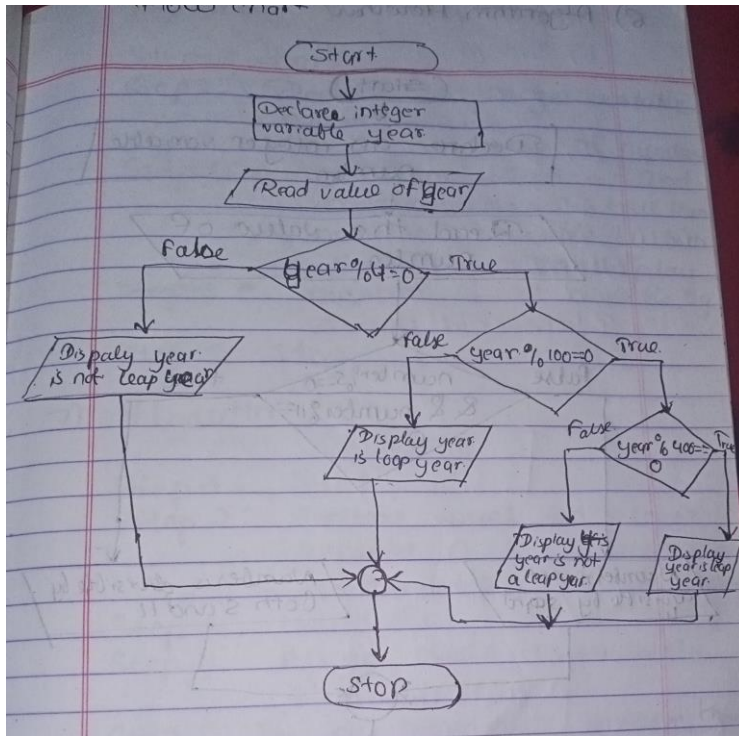 Flow Chart
Start
Declare integer
variable year
Read value of year
False
year%4=0
True
Dispaly year
is not leap year
False
year.%100=0
True
Display year
is loop year
False
year%400==
0
True
Display
year is not
a leap year.
Display
year is leap
year.
Stop